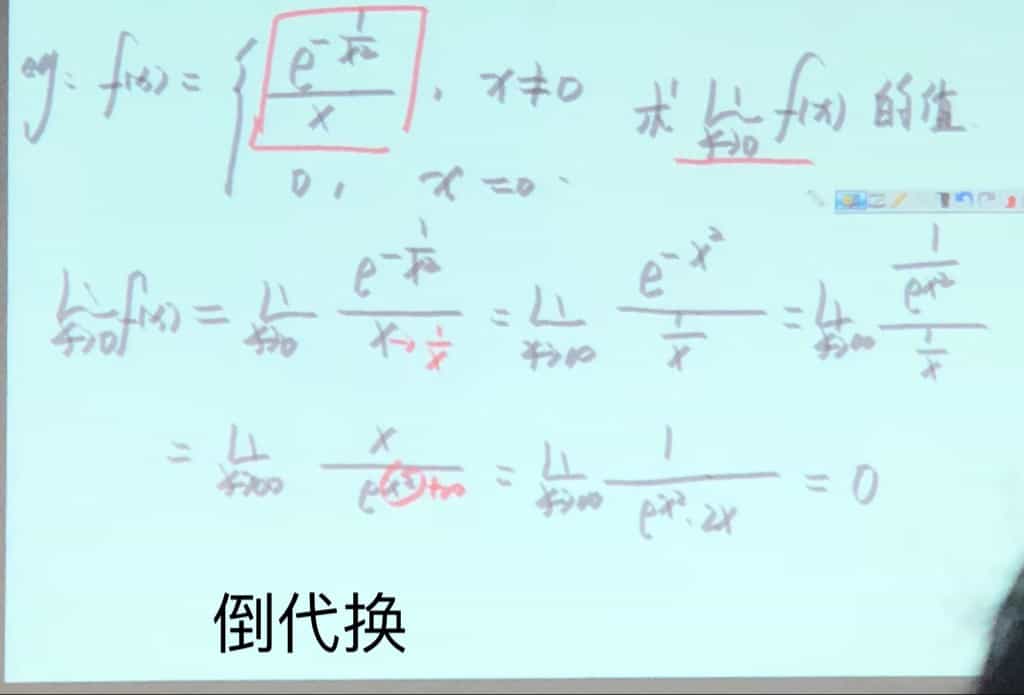 eg: f(x) = { e^{-1/x²} / x , x≠0 求 lim_{x→0} f(x) 的值.
0, x=0.
lim_{x→0} f(x) = lim_{x→0} e^{-1/x²} / (x→1/x) = lim_{x→∞} e^{-x²} / (1/x) = lim_{x→∞} (1/e^{x²}) / (1/x)
= lim_{x→∞} x / e^{x²} +∞ = lim_{x→∞} 1 / (e^{x²}·2x) = 0
倒代换